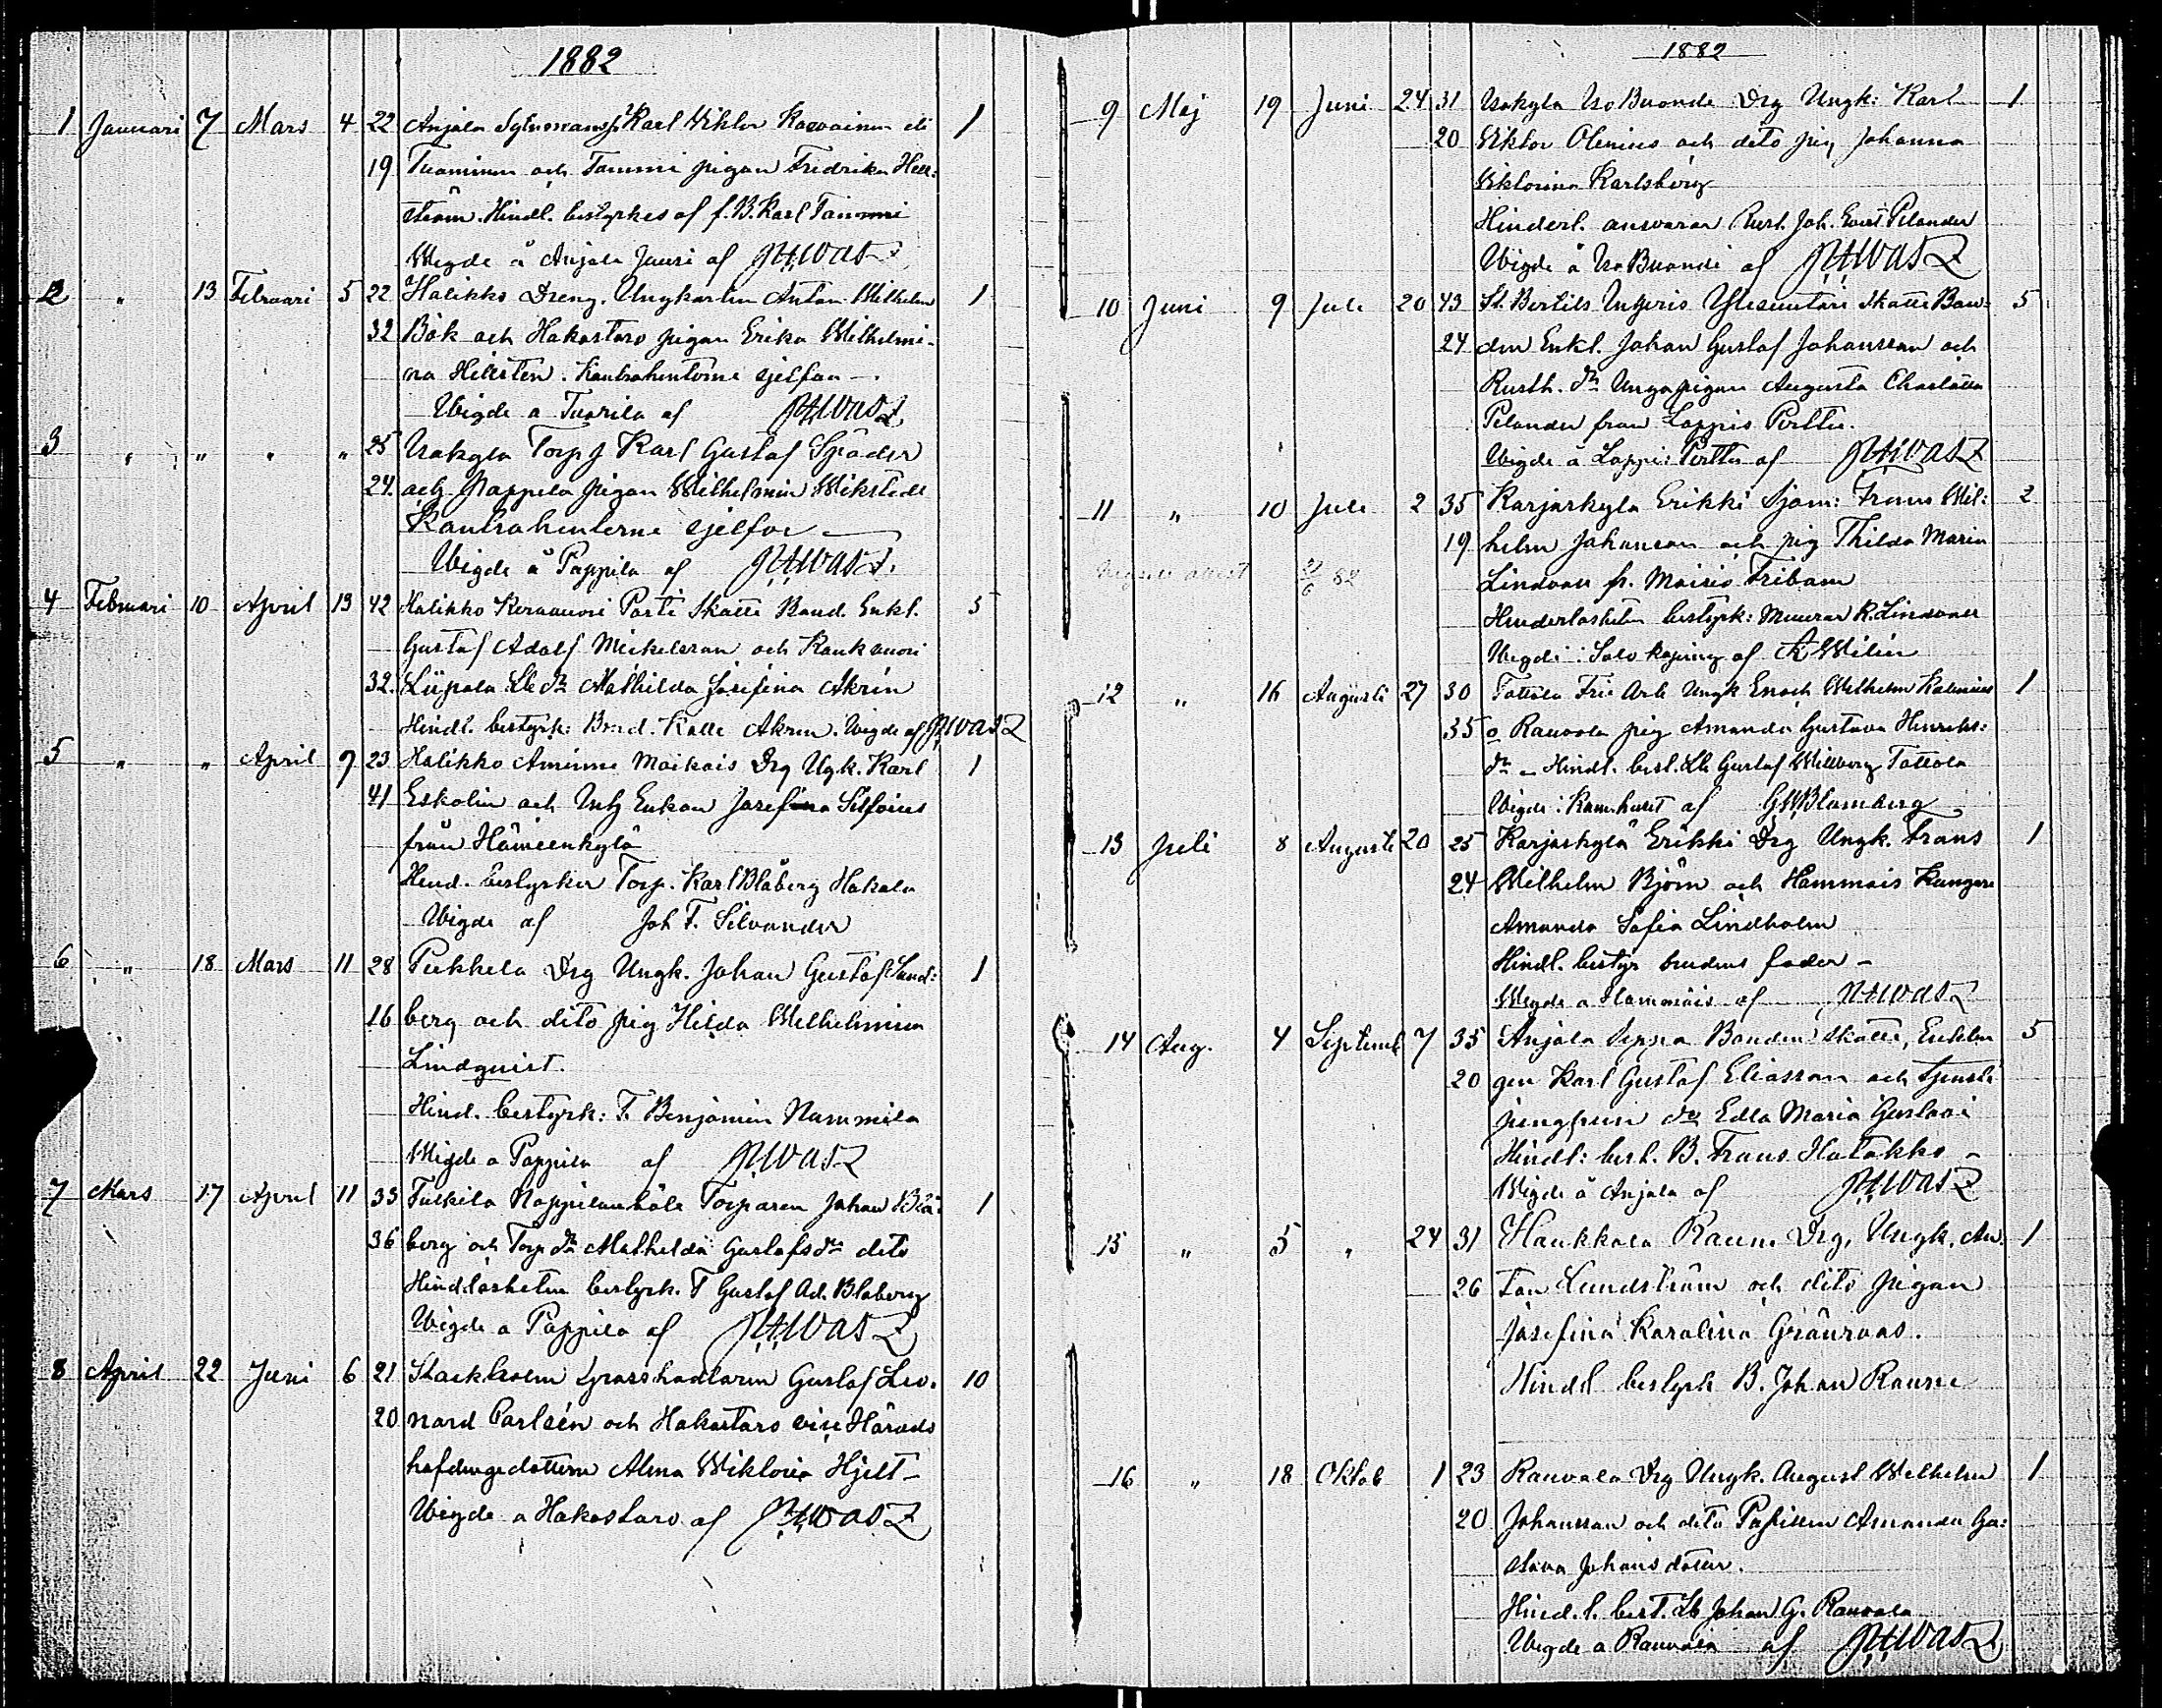 1882
1 Januari 7 Mars 4 22 Anjala Karl Viktor 1
19 Tuominen och Tammi pigan Fredrika Hell:
ström. Hindl. bestyrkes af f. B. Karl Tammi
Wigde å Anjala Juuri af
2 " 13 Februari 5 22 Halikko Dreng. Ungkarlen Anton Wilhelm 1
32 Bök och Hakostaro pigan Erika Wilhelmi-
na Hellsten. Kontrahenterne sjelfva -
Wigde a Tuorila af
3 " " " " 25 Isokyla Torp Karl Gustaf
24. och Pappila pigan Wilhelmin Wikstedt
Kontrahenterne sjelfva
Wigde å Pappila af
4 Februari 10 April 13 42 Halikko Keravuori Parti Skatte Bond. Enkl. 5
Gustaf Adolf Mickelsson och Kaukvuori
32. Liipola Lb dr Mathilda Josefina Akrén
Hindl. bestyrk: Bond. Kalle Akren. Wigde af
5 " " April 9 23 Halikko Aminne Moikois Drg Ugk. Karl 1
41 Eskolin och Enkan Josefina
från Hämeenkylä
Hind. bestyrker Torp. Karl Blåberg Hakala
Wigde af Joh F. Silvander
6 " 18 Mars 11 28 Pukkila Drg Ungk. Johan Gustaf Sund: 1
16 berg och dito pig Hilda Wilhelmina
Lindquist.
Hind. bestyrk: T. Benjamin Nummila
Wigde a Pappila af
7 Mars 17 April 11 33 Torparen Johan Blå: 1
36 berg och Torp dr Mathilda Gustafsdr dito
Hindlösheten bestyrk. T Gustaf Ad. Blåberg
Wigde a Pappila af
8 April 22 Juni 6 21 Stockholm Grosshandlaren Gustaf Leo. 10
20 nard Carlsén och Hakostaro vise Härads
höfdingedottern Alma Wiktoria Hjelt -
Wigde a Hakostaro af
1882
9 Maj 19 Juni 24 31 Isokyla Iso Buonde Drg Ungk: Karl 1
20 Viktor Olenius och dito pig Johanna
Viktorina Karlsberg
Hinderl. ansvarar Rust. Joh. Evert Pelander
Wigde å Iso Buonde af
10 Juni 9 Juli 20 43 St. Bertils Ingeris Skatte Bon- 5
24 den Enkl. Johan Gustaf Johansson och
Rusth. dr Unga pigan Augusta Charlotta
Pelander från Loppis Perttu.
Wigde å Loppis Perttu af
11 " 10 Juli 2 35 Karjaskyla Erikki Sjöm: Frans Wil: 2
19 helm Johansson och pig Thilda Maria
6 82 Lindvall fr. Moisio
Hinderlösheten bestyrk: Murar K. Lindvall
Wigde i Salo köping af
12 " 16 Augusti 27 30 Tottola Frie Arb Ungk Enoch Wilhelm 1
35 o Rauvola pig Amanda Gustava Henriks:
dr - Hindl. best. Lb Gustaf Willberg Tottola
Wigde i af Blomberg
13 Juli 8 Augusti 20 25 Karjaskylä Erikki Drg Ungk. Frans 1
24 Wilhelm Björn och Hammais
Amanda Sofia Lindholm
Hindl. bestyr brudens fader -
Wigde a Hammais af
14 Aug. 4 Septemb 7 35 Anjala Seppa Bonden skatte, Enklin 5
20 gen Karl Gustaf Eliasson och
jungfrun dr Edla Maria
Hindl: best. B. Frans Hatakko -
Wigde å Anjala af
15 " 5 " 24 31 Haukkala Raune Drg, Ungk. An. 1
26 ton Lundström och dito pigan
Josefina Karolina Grönroos.
Hindl bestyrk B. Johan Raune
16 " 18 Oktob 1 23 Rauvola Drg Ungk. August Wilhelm 1
20 Johansson och dito Amanda Gu:
stava Johansdotter.
Hind. l. best. Lb Johan G. Rauvola
Wigde a Rauvola af